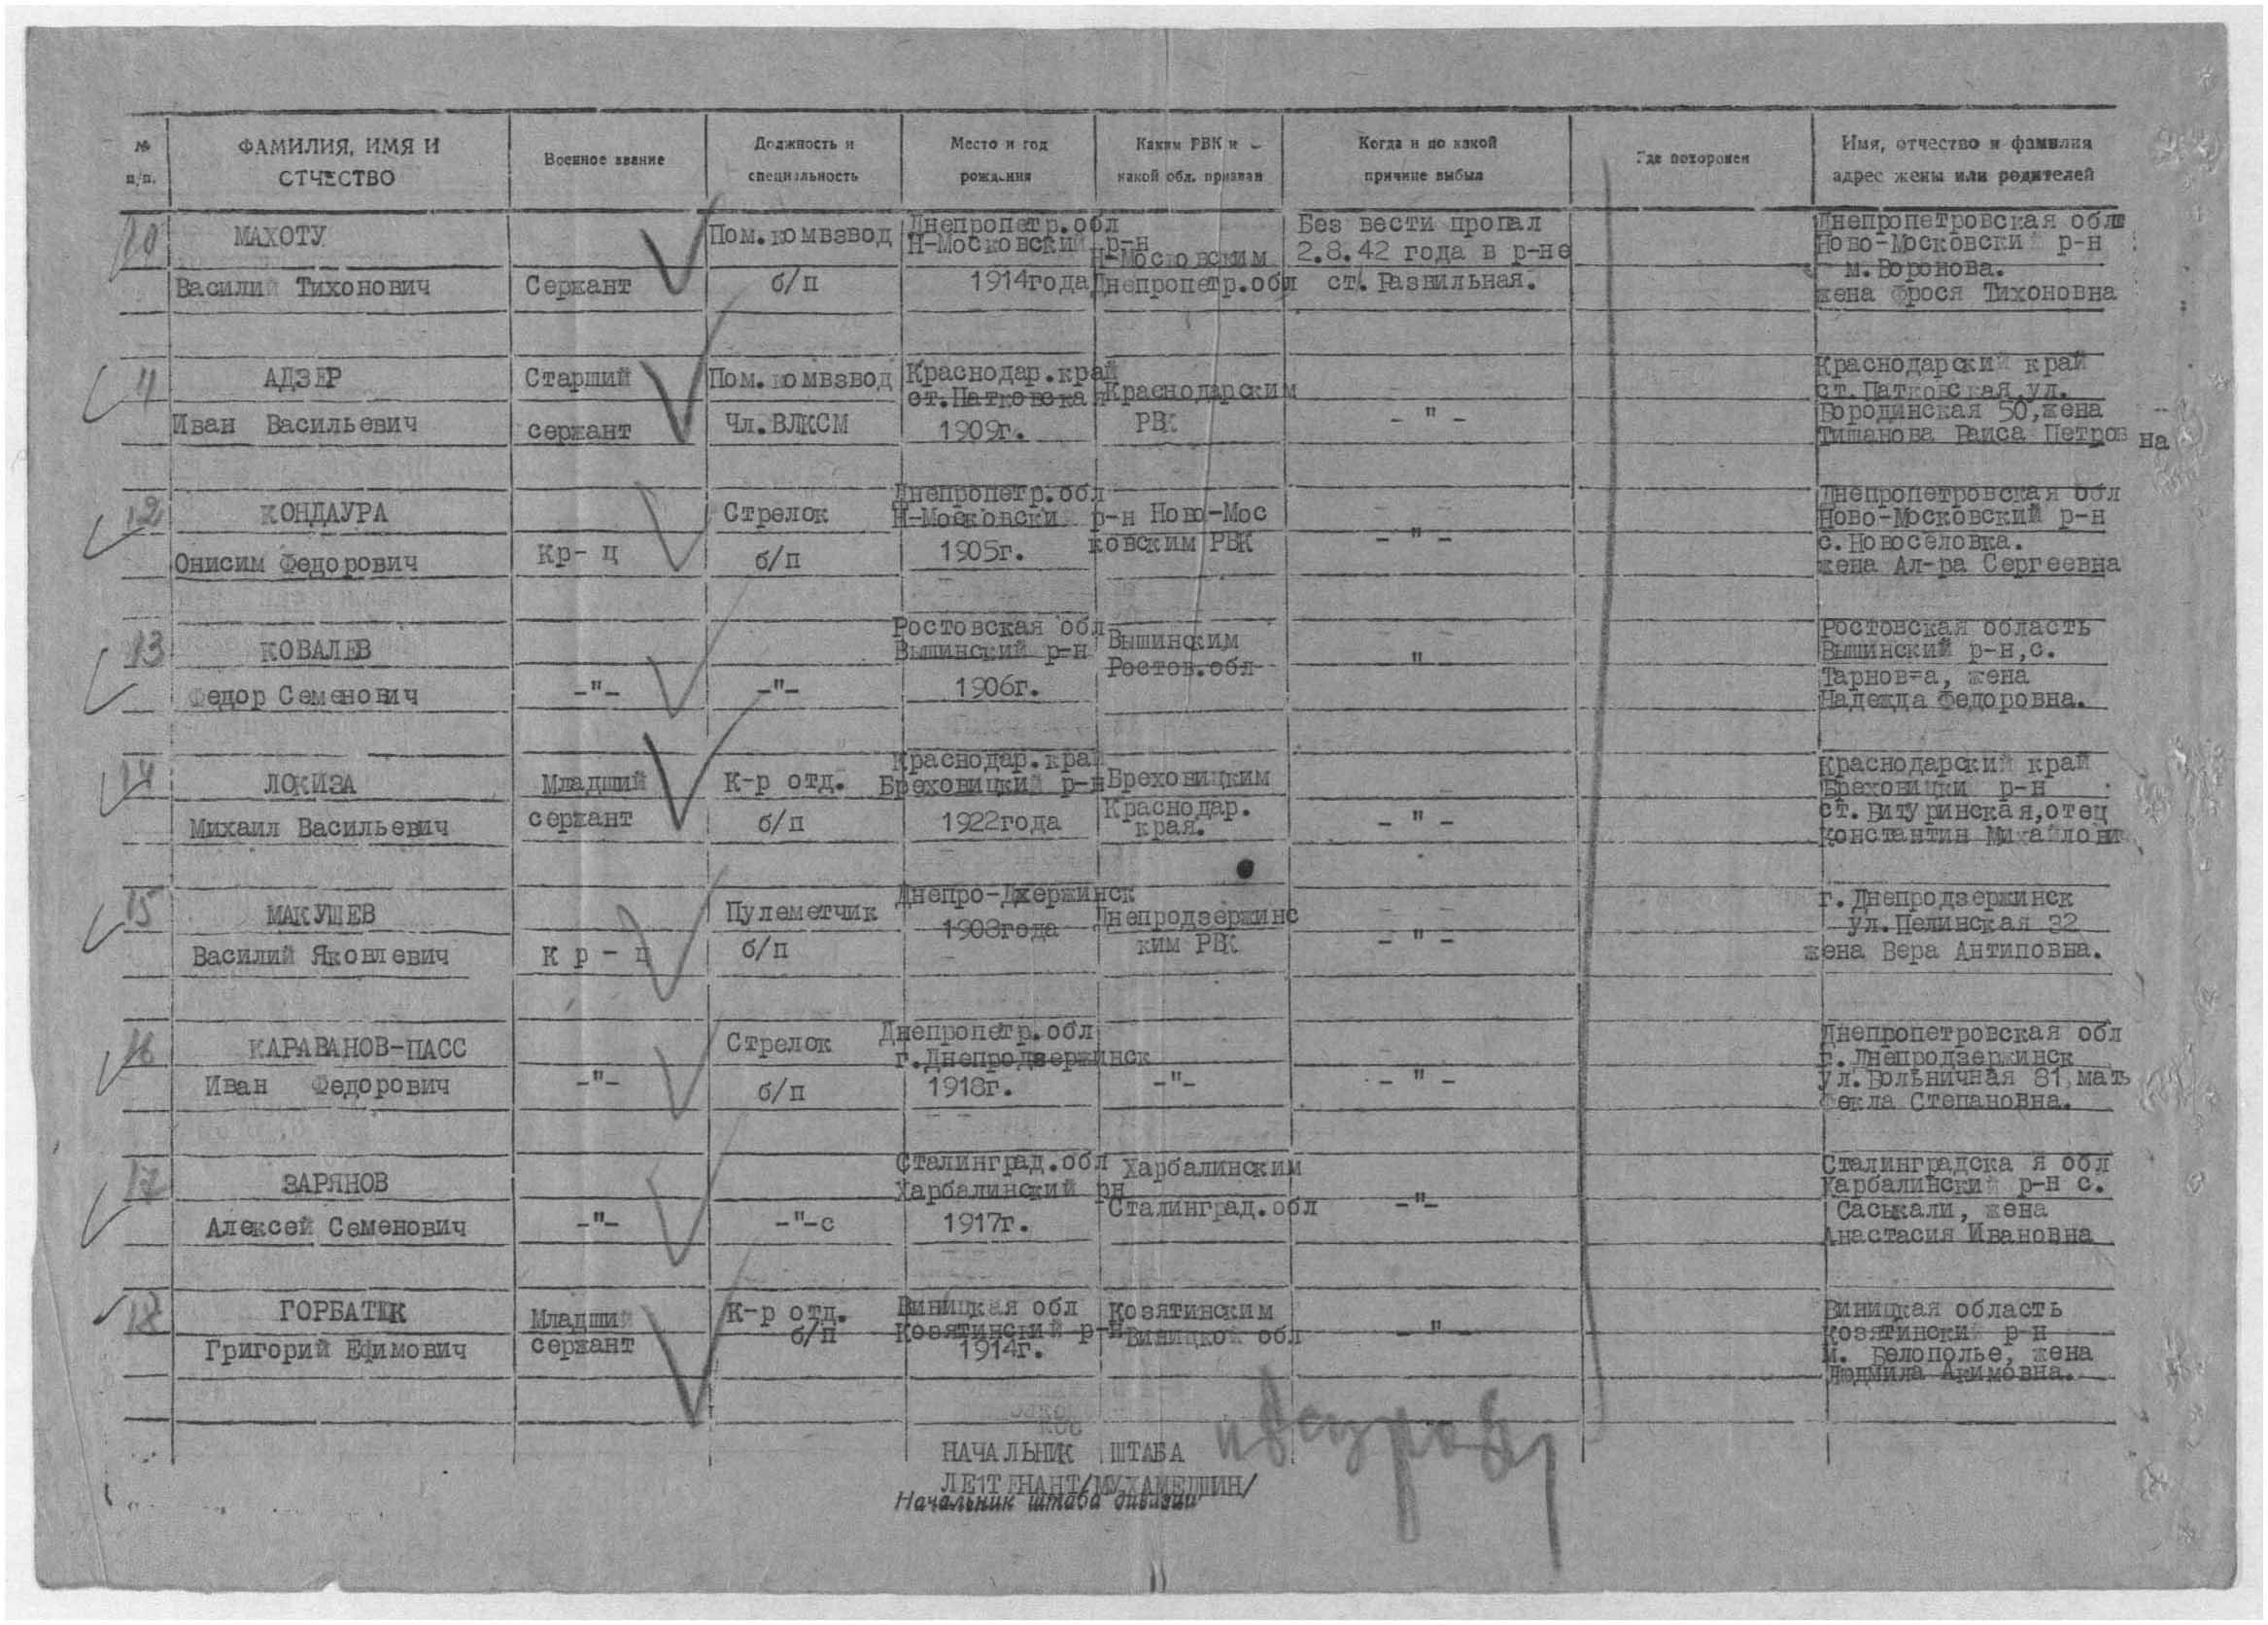 № п/п.
ФАМИЛИЯ, ИМЯ И ОТЧЕСТВО
Военное звание
Должность и специальность
Место и год рождения
Каким РВК и какой обл. призван
Когда и по какой причине выбыл
Где похоронен
Имя, отчество и фамилия адрес жены или родителей
10
МАХОТУ
Василий Тихонович
Сержант
Пом.комвзвод
б/п
Днепропетр.обл
Н-Московский р-н
1914года
Н-Московским
Днепропетр.обл
Без вести пропал
2.8.42 года в р-не
ст. Развильная.
Днепропетровская обл
Ново-Московский р-н
м.Воронова.
жена Фрося Тихоновна
11
АДЗЕР
Иван Васильевич
Старший
сержант
Пом.комвзвод
Чл.ВЛКСМ
Краснодар.край
ст.Патковская
1909г.
Краснодарским
РВК
-"-
Краснодарский край
ст.Патковская,ул.
Бородинская 50,жена
Тишанова Раиса Петровна
12
КОНДАУРА
Онисим Федорович
Кр-ц
Стрелок
б/п
Днепропетр.обл
Н-Московский р-н
1905г.
Ново-Мос
ковским РВК
-"-
Днепропетровская обл
Ново-Московский р-н
с.Новоселовка.
жена Ал-ра Сергеевна
13
КОВАЛЕВ
Федор Семенович
-"-
-"-
Ростовская обл
Вышинский р-н
1906г.
Вышинским
Ростов.обл
"
Ростовская область
Вышинский р-н,с.
Тарнов=а, жена
Надежда Федоровна.
14
ЛОКИЗА
Михаил Васильевич
Младший
сержант
К-р отд.
б/п
Краснодар.край
Бреховицкий р-н
1922года
Бреховицким
Краснодар.
края.
-"-
Краснодарский край
Бреховицки р-н
ст.Витуринская,отец
Константин Михайлович
15
МАКУШЕВ
Василий Яковлевич
Кр-ц
Пулеметчик
б/п
Днепро-Джержинск
1908года
Днепродзержинс
ким РВК
-"-
г.Днепродзержинск
ул.Пелинская 32
жена Вера Антиповна.
16
КАРАВАНОВ-ПАСС
Иван Федорович
-"-
Стрелок
б/п
Днепропетр.обл
г.Днепродзержинск
1918г.
-"-
-"-
Днепропетровская обл
г.Днепродзержинск
ул.Больничная 81,мать
Фекла Степановна.
17
ЗАРЯНОВ
Алексей Семенович
-"-
-"-с
Сталинград.обл
Харбалинский рн
1917г.
Харбалинским
Сталинград.обл
-"-
Сталинградска я обл
Харбалинский р-н с.
Саськали, жена
Анастасия Ивановна
18
ГОРБАТЮК
Григорий Ефимович
Младший
сержант
К-р отд.
б/п
Виницкая обл
Козятинский р-н
1914г.
Козятинским
Виницкой обл
-"-
Виницкая область
Козятински р-н
м. Белополье, жена
Людмила Акимовна.
НАЧАЛЬНИК ШТАБА
ЛЕЙТЕНАНТ/МУХАМЕДШИН/
Начальник штаба дивизии